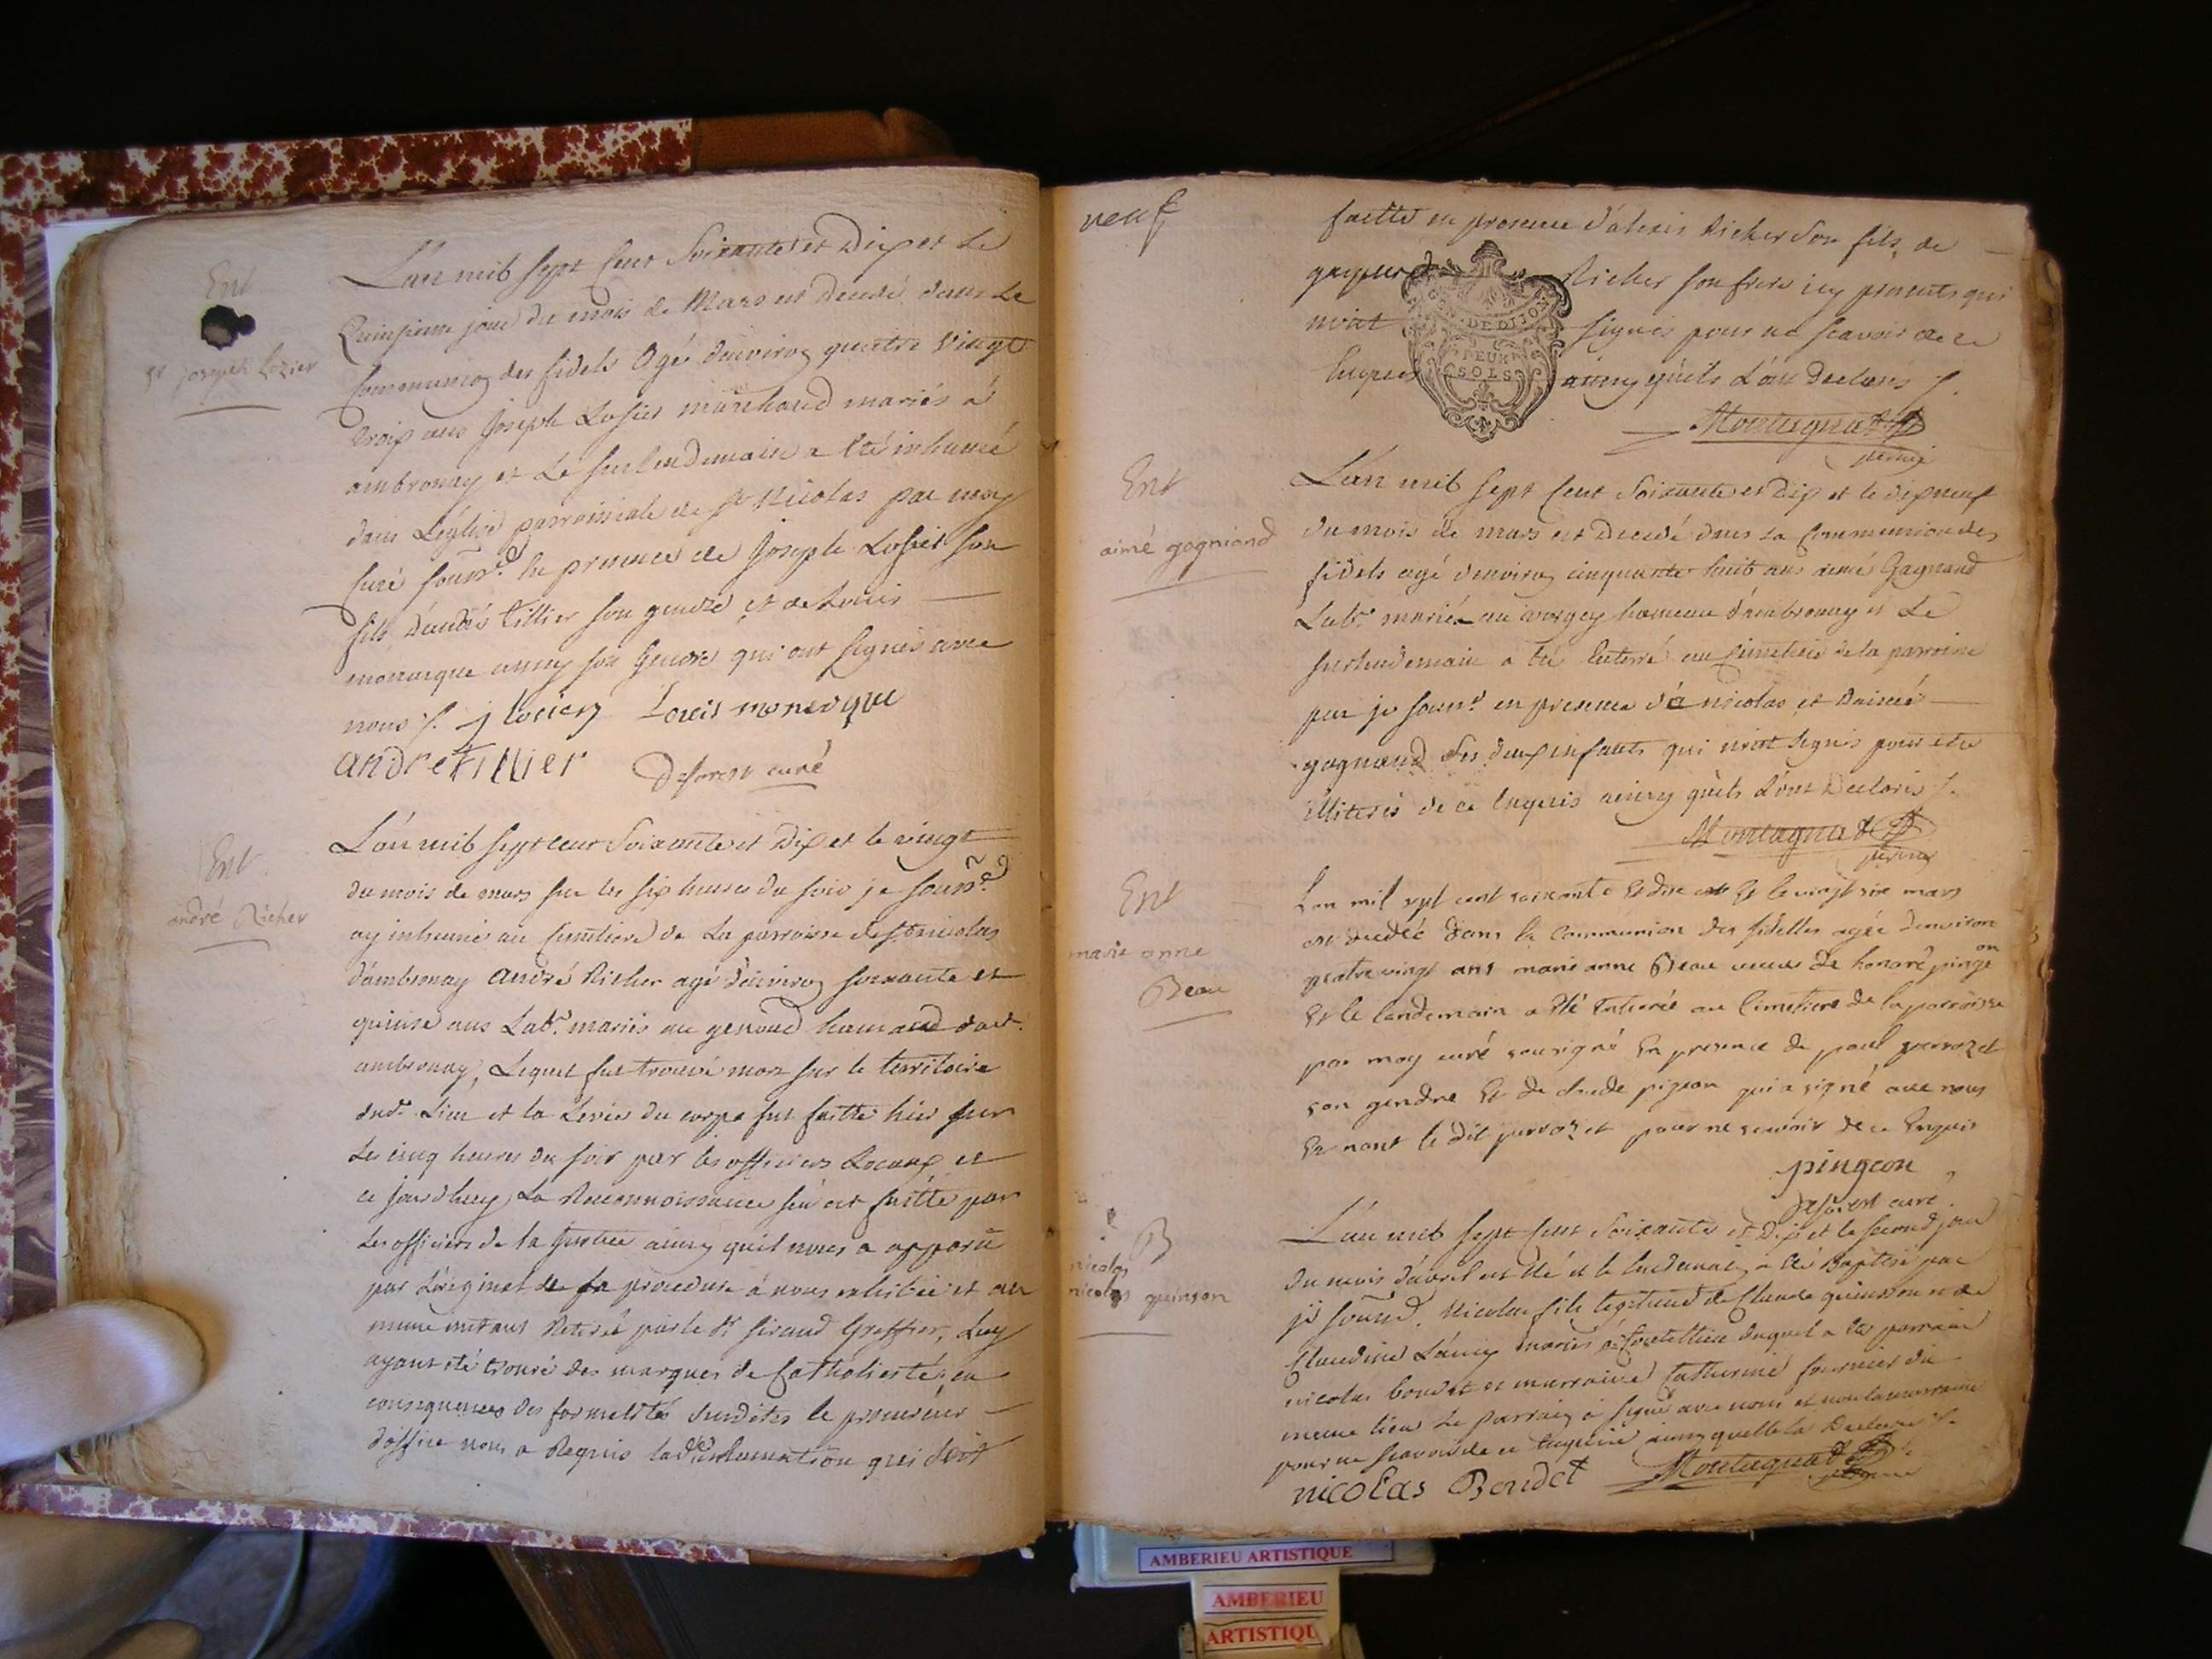 Ent
Sr Joseph Lozier
L'an mil sept cent soixante et dix et le
Quinzieme jour du mois de Mars est decedé dans la
Communion des fidels agé denviron quatre vingt
trois ans Joseph Losier marchand mariés à
ambronay et le surlendemain a été inhumé
dans L'eglise parroissiale de St Nicolas par moy
curé soussd. En presence de Joseph Losier son
fils, d'andré tillier son gendre et de Louis
monarque aussy son Gendre qui ont signés avec
nous /. j losier Louis monarque
andre tillier Deforest curé
Ent
andré Richer
L'an mil sept cent soixante et dix et le vingt
du mois de mars sur les six heures du soir je soussd.
ay inhumé au Cimetiere de La parroisse de St nicolas
d'ambronay andré Richer agé d'environ soixante et
quinse ans Labr. mariés au genoud hameau dud.
ambronay, Lequel fut trouvé mort sur le territoire
dud. Lieu et la Levée du corps fut faitte hier sur
Les cinq heures du soir par les officiers Locaux et
ce jourdhuy La Reconnoissance s'en est faitte par
Les officiers de la Justice ainsy quil nous a apparu
par L'original de la procedure à nous exhibée et au
meme instant Retiré par le Sr siraud Greffier, Luy
ayant été trouvé des marques de Catholicité; en
consequences des formalités susdites le procureur
d'office nous a Requis lade. inhumation qui s'est
neuf
faitte en presence d'alexis Richer son fils, de
Richer son frere icy presents qui
n'ont signés pour ne scavoir de ce
Enquis ainsy quils L'ont declarés /.
GEN. DE DIJON
DEUX
SOLS
Montagnat
Ent
aimé gagniand
L'an mil sept cent soixante et dix et le dixneuf
du mois de mars est decedé dans la Communion des
fidels agé denviron cinquante huit ans aimé Gagnand
Labr. marié au vorgey hameau d'ambronay et Le
surlendemain a été Enterré au Cimetiere de la parroisse
par je soussd. en presence de nicolas et d'aimé
gagnand ses deux enfants qui n'ont signés pour etre
illiterés de ce Enquis ainsy quils L'ont declarés /.
Montagnat
Ent
marie anne
Beau
Lan mil sept cent soixante et dix et le vingt six mars
est decedeé dans la Communion des fidelles agée denviron
quatre vingt ans marie anne Beau veuve de honoré pingeon
Et le landemain a été Enterrée au Cimetiere de la parroisse
par moy curé sousigné En presence de paul perrozet
son gendre Et de claude pigeon qui a signé avec nous
Et nont le dit perrozet pour ne scavoir de ce Enquis
pingeon
Deforest curé
B
nicolas
nicolas guinson
L'an mil sept cent soixante et dix et le second jour
du mois d'avril est né et le lendemain a été Baptisé par
je soussd. Nicolas fils legitime de Claude guinson et de
Claudine mariés à duquel a été parrain
nicolas boudet et marraine Catherine fournier du
meme lieu Le parrain a signé avec nous et non la marraine
pour ne scavoir de ce Enquise ainsy quelle la Declaré /.
nicolas Boudet Montagnat
AMBERIEU ARTISTIQUE
AMBERIEU
ARTISTIQU